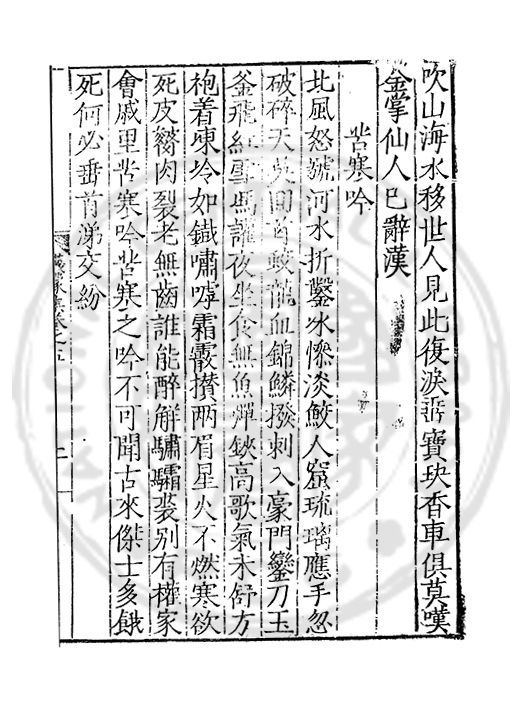 吹山海水移世人見此復淚垂寶玦香車俱莫嘆
金掌仙人已辭漢
苦寒吟
北風怒號河水折鑿冰慘淡鮫人窟琉璃應手忽
破碎天吳回首蛟龍血錦鱗撥刺入豪門鑾刀玉
釜飛紅雪馮讙夜坐食無魚彈鋏高歌氣未舒方
袍着凍冷如鐡嘯嘑霜霰攅兩眉星火不燃寒欲
死皮膐肉裂老無齒誰能醉解驌驦裘别有權家
會戚里苦寒吟苦寒之吟不可聞古來傑士多餓
死何必垂首涕交紛
卷之五